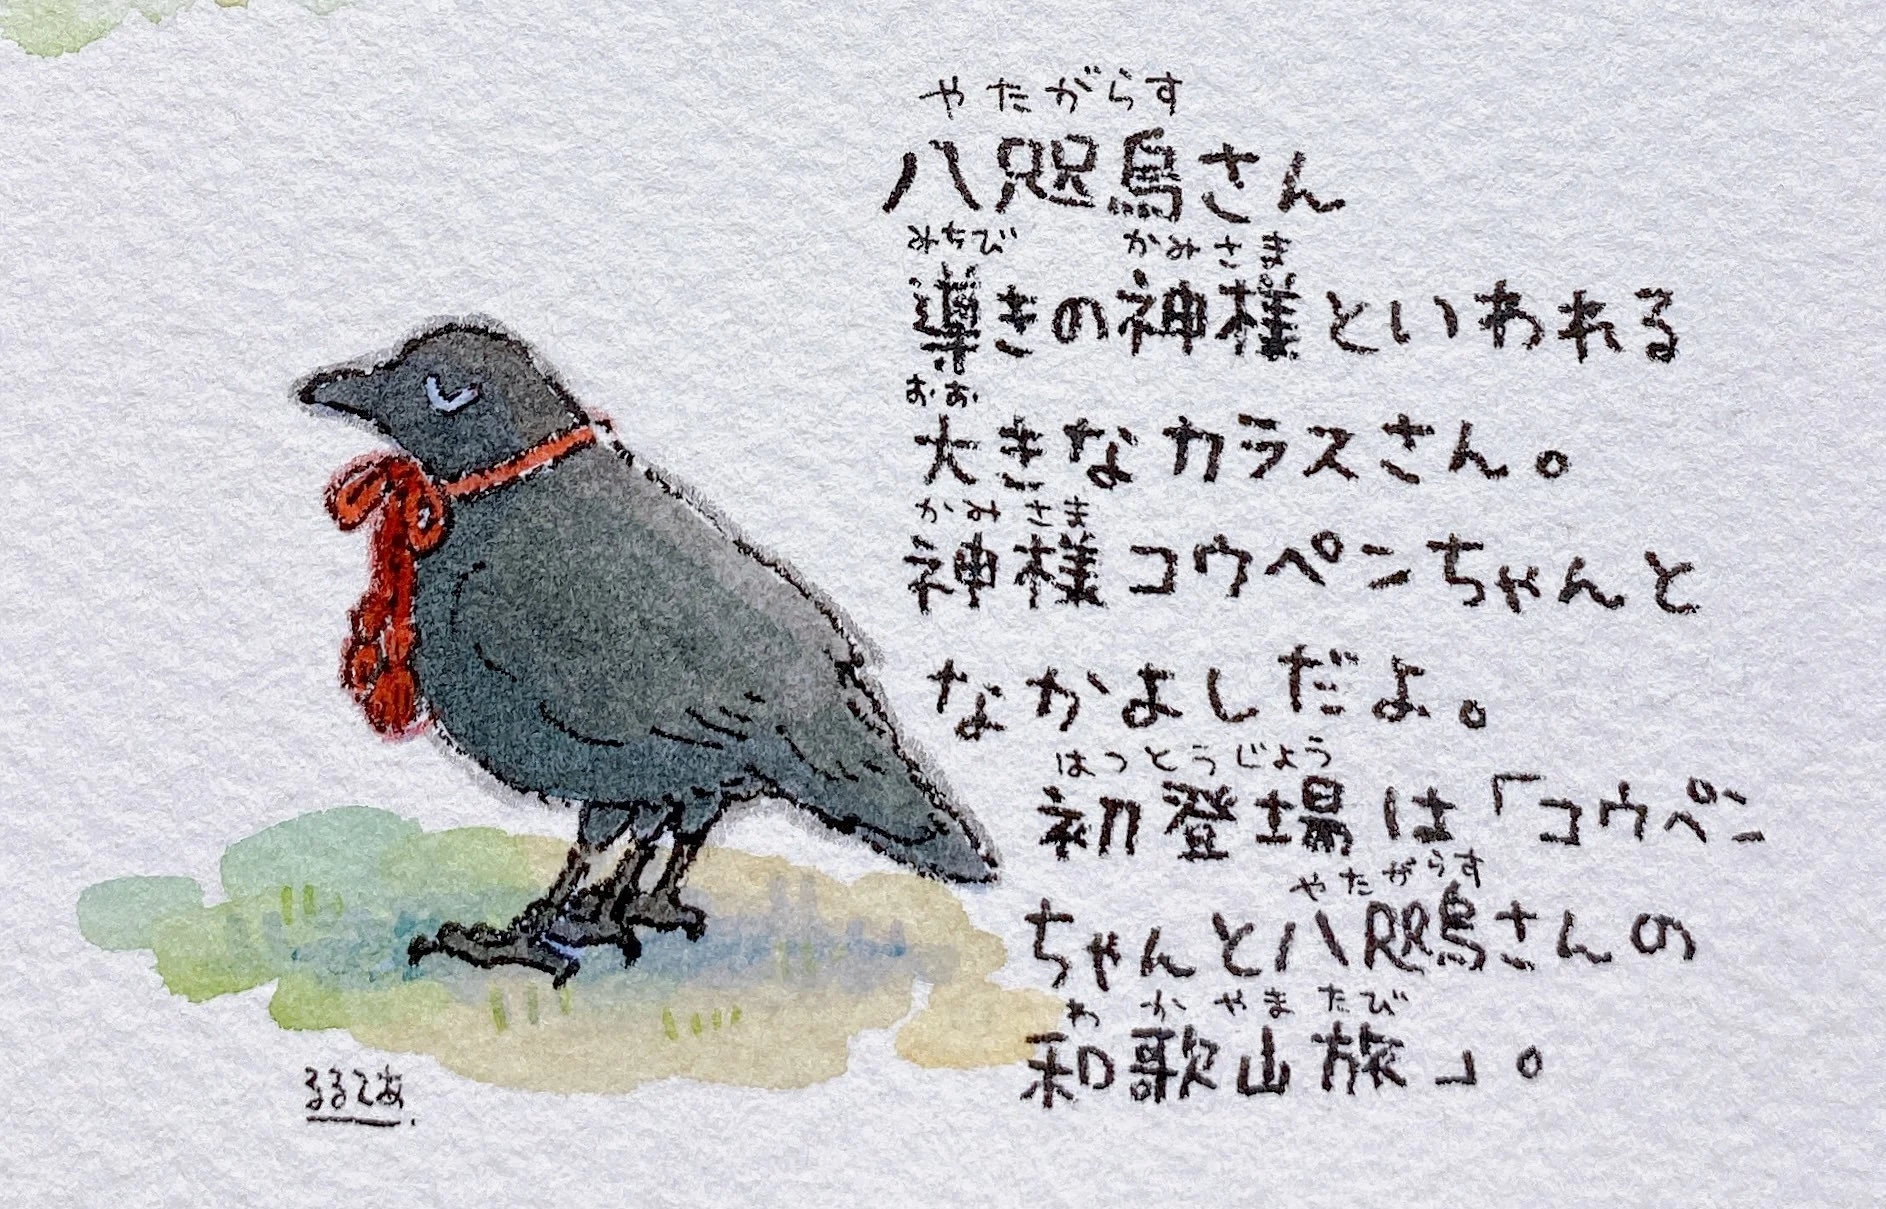 やたがらす
八咫烏さん
みちび かみさま
導きの神様といわれる
おお
大きなカラスさん。
かみさま
神様コウペンちゃんと
なかよしだよ。
はつとうじょう
初登場は「コウペン
やたがらす
ちゃんと八咫烏さんの
わかやまたび
和歌山旅」。
るるてあ